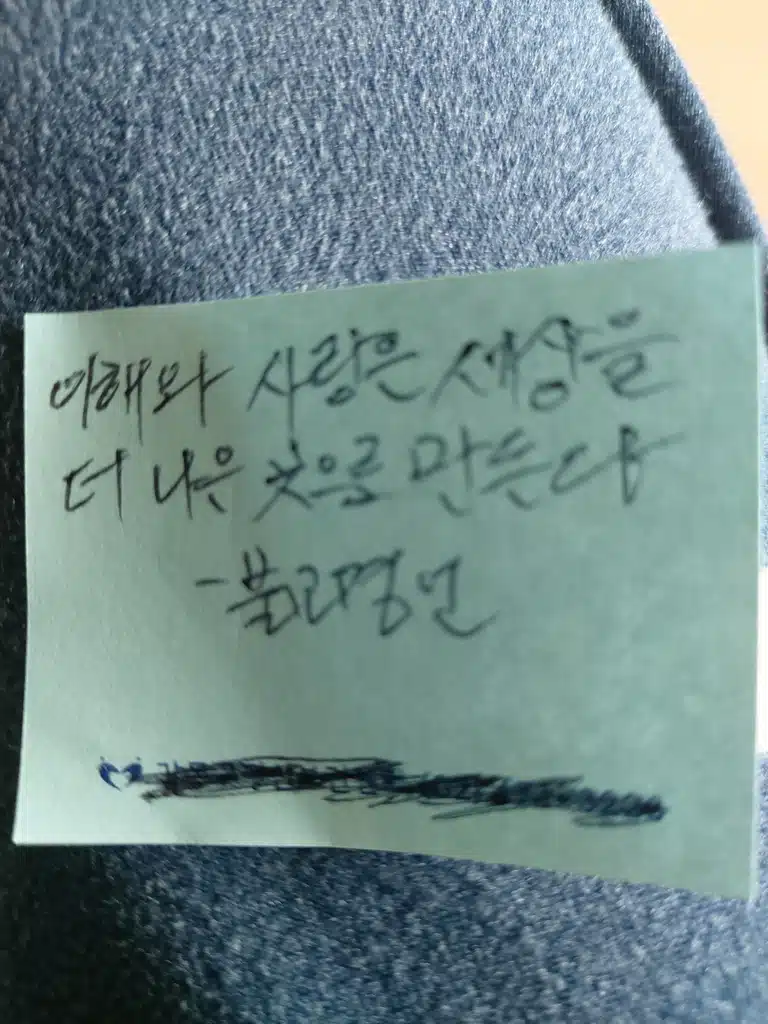 이해와 사랑은 세상을
더 나은 곳으로 만든다